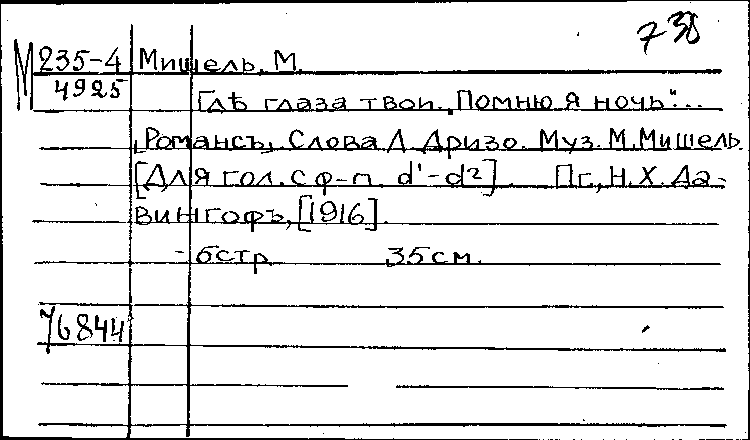 738
М 235-4 Мишель, М.
4925
Гдѣ глаза твои. „Помню я ночь"...
„Романсъ„ Слова Л. Дризо. Муз. М. Мишель.
[Для гол. с ф-п. d'-d2]. Пг., Н. Х. Да-
вингофъ, [1916].
- 6стр. 35см.
76844